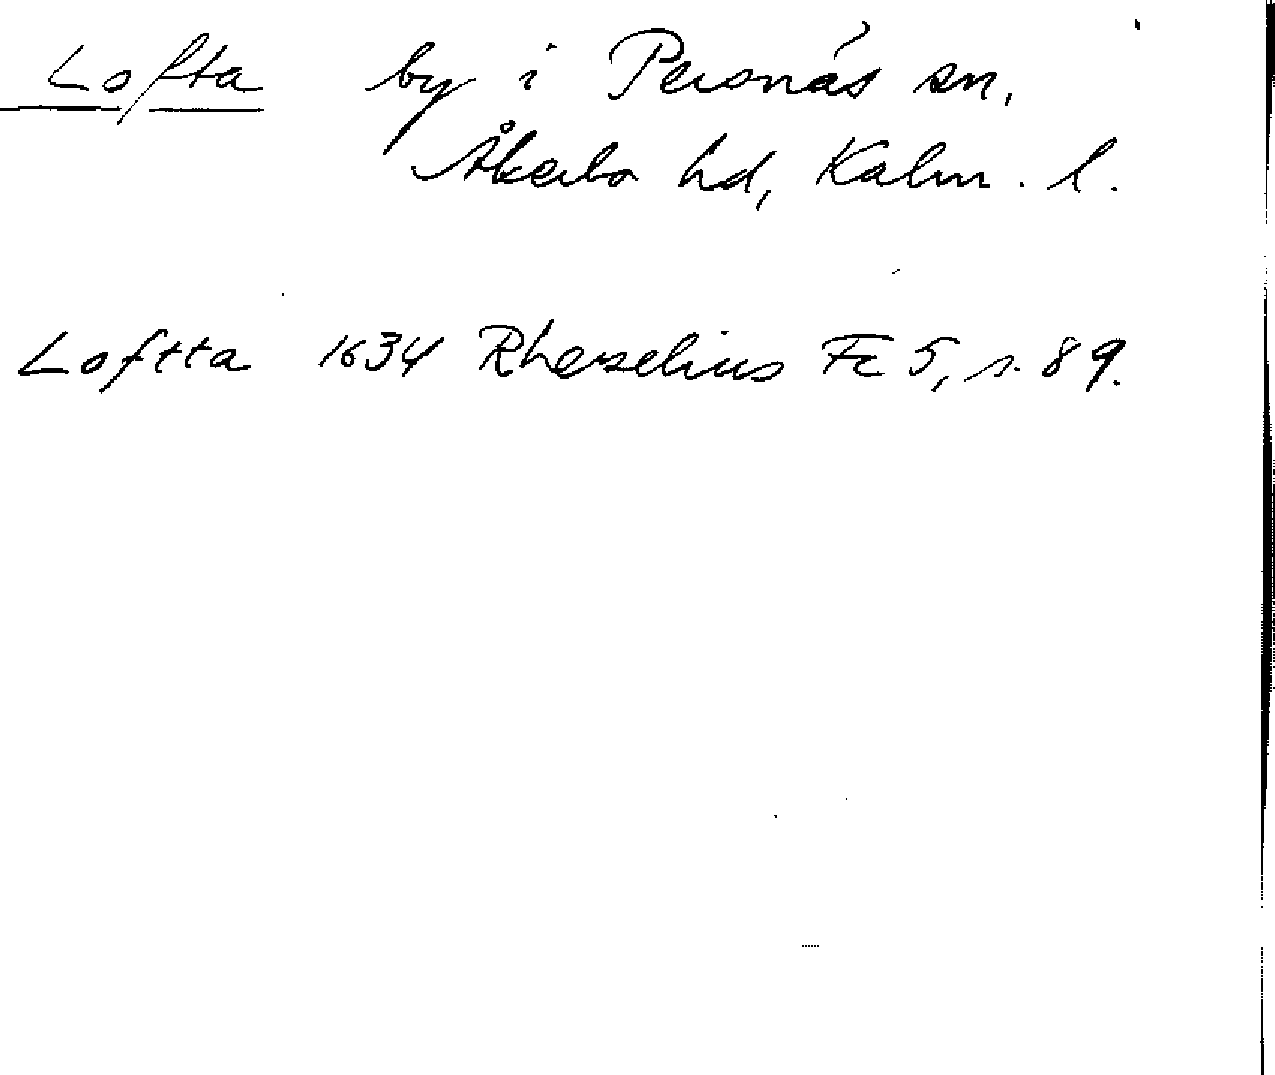 Lofta by i Persnäs sn,
Åkerbo hd, Kalm. l.
Loftta 1634 Rhezelius Fc 5, s. 89.